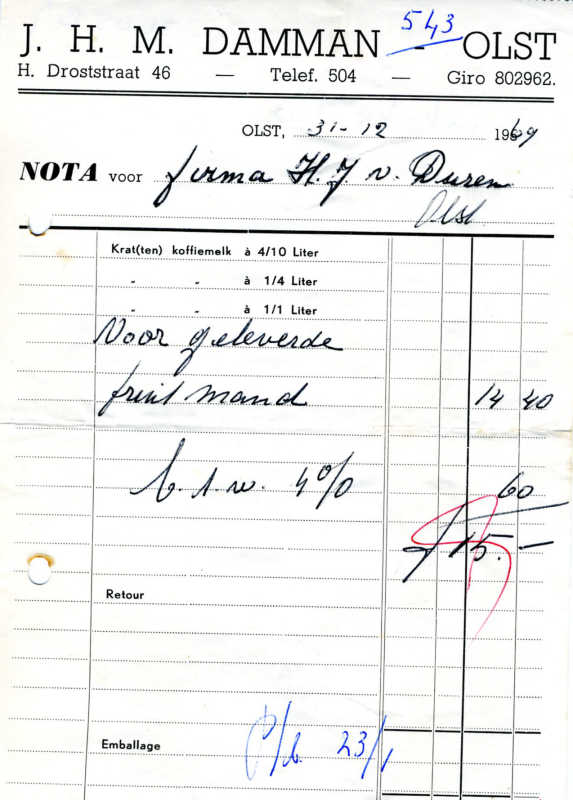 543
J. H. M. DAMMAN - OLST
H. Droststraat 46 — Telef. 504 — Giro 802962.
OLST, 31-12 1969
NOTA voor firma H. J v. Duren
Olst
Krat(ten) koffiemelk à 4/10 Liter
„ „ à 1/4 Liter
„ „ à 1/1 Liter
Voor geleverde
fruit mand 14 40
b.t.w. 4% 60
f 15.-
Retour
Emballage
P/b. 23/1